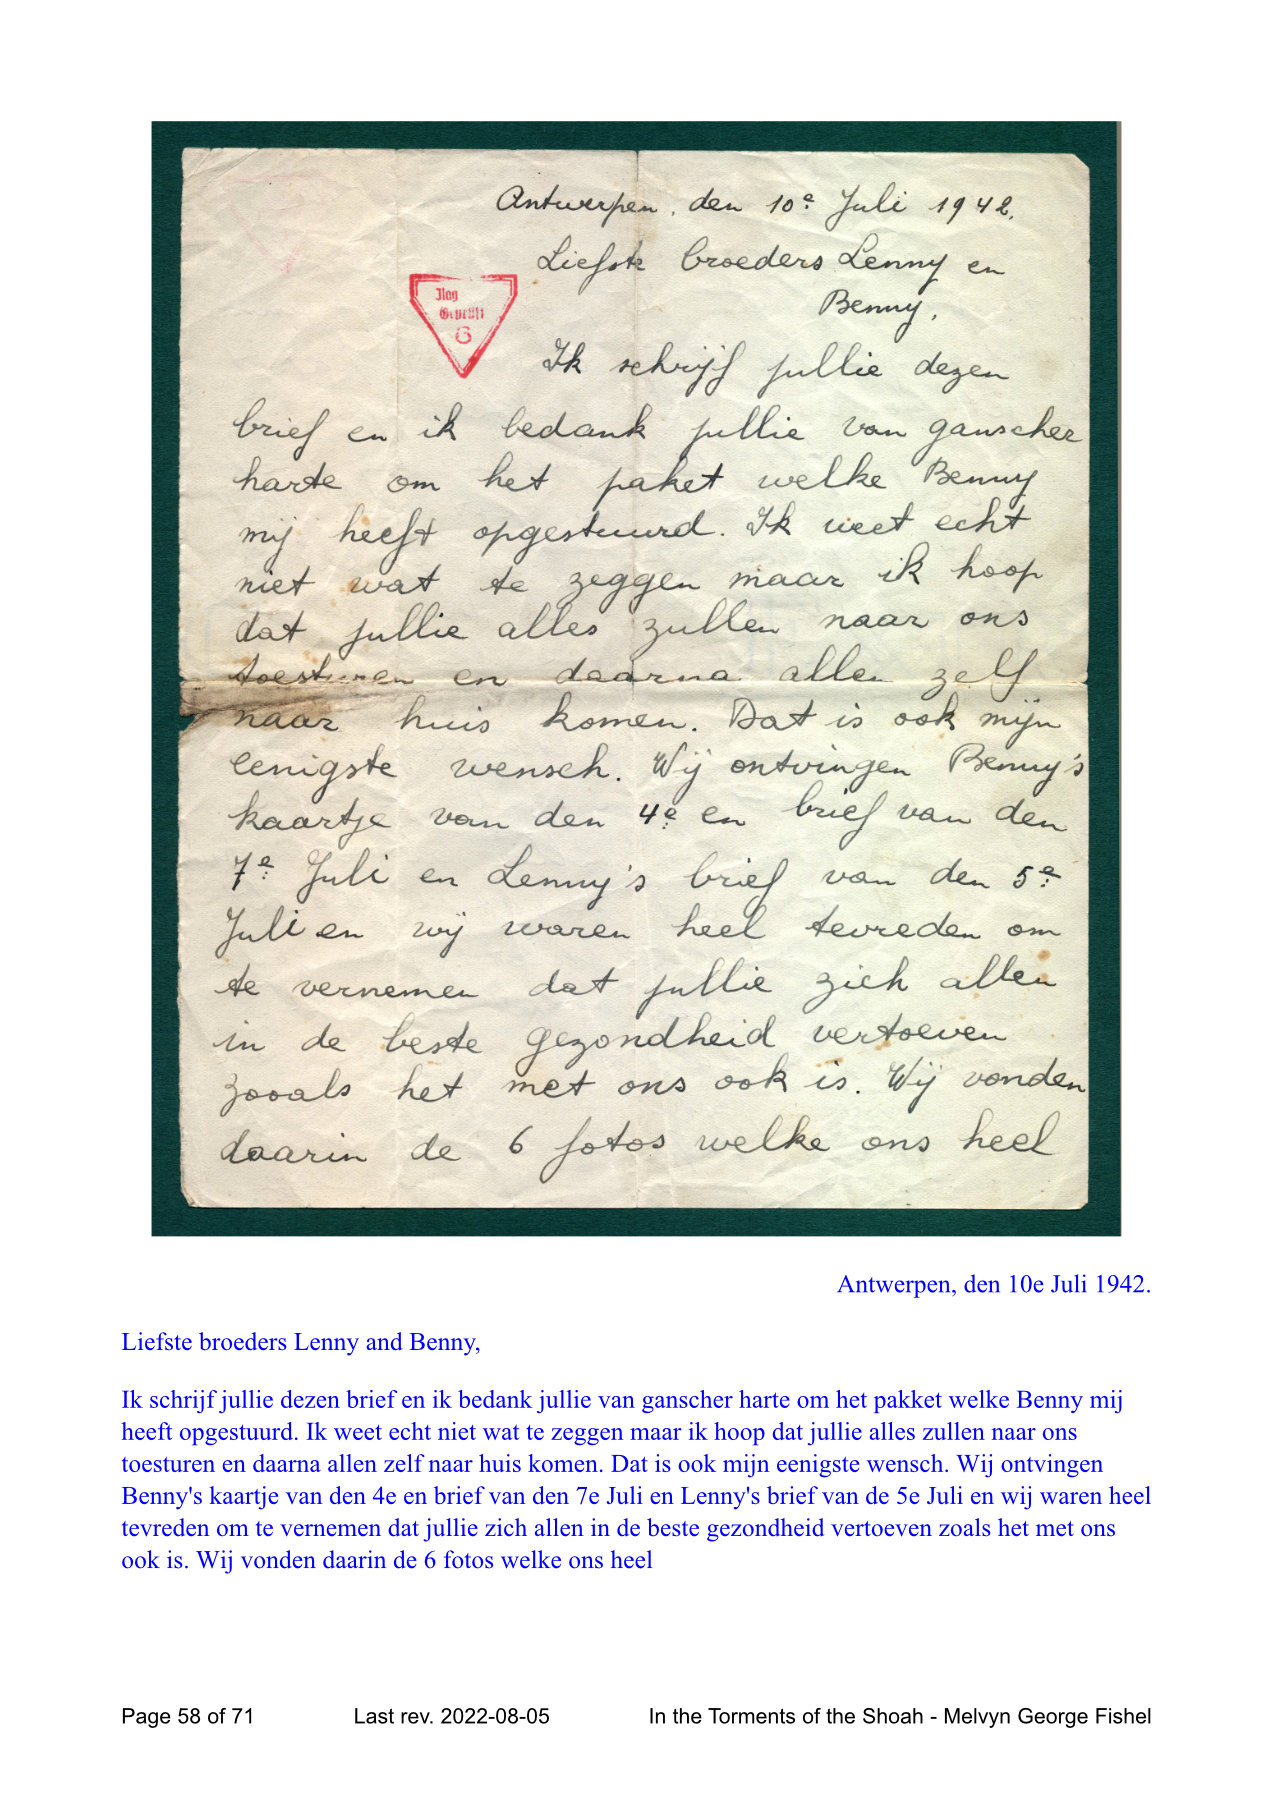 Antwerpen, den 10e Juli 1942.
Liefste broeders Lenny en
Benny,
Ilag
Geprüft
6
Ik schrijf jullie dezen
brief en ik bedank jullie van ganscher
harte om het paket welke Benny
mij heeft opgestuurd. Ik weet echt
niet wat te zeggen maar ik hoop
dat jullie alles zullen naar ons
toesturen en daarna allen zelf
naar huis komen. Dat is ook mijn
eenigste wensch. Wij ontvingen Benny's
kaartje van den 4e en brief van den
7e Juli en Lenny's brief van den 5e
Juli en wij waren heel tevreden om
te vernemen dat jullie zich allen
in de beste gezondheid vertoeven
zooals het met ons ook is. Wij vonden
daarin de 6 fotos welke ons heel
Antwerpen, den 10e Juli 1942.
Liefste broeders Lenny and Benny,
Ik schrijf jullie dezen brief en ik bedank jullie van ganscher harte om het pakket welke Benny mij
heeft opgestuurd. Ik weet echt niet wat te zeggen maar ik hoop dat jullie alles zullen naar ons
toesturen en daarna allen zelf naar huis komen. Dat is ook mijn eenigste wensch. Wij ontvingen
Benny's kaartje van den 4e en brief van den 7e Juli en Lenny's brief van de 5e Juli en wij waren heel
tevreden om te vernemen dat jullie zich allen in de beste gezondheid vertoeven zoals het met ons
ook is. Wij vonden daarin de 6 fotos welke ons heel
Page 58 of 71 Last rev. 2022-08-05 In the Torments of the Shoah - Melvyn George Fishel